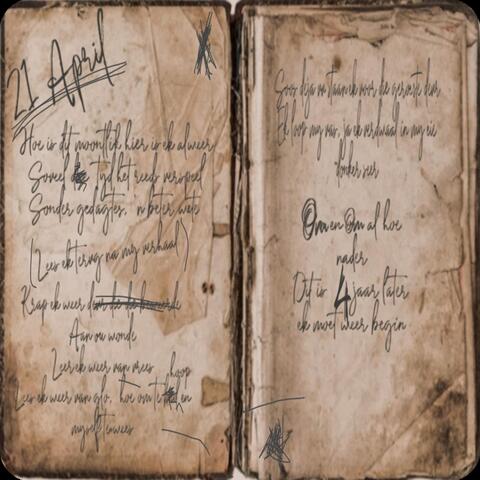 21 April
Hoe is dit moontlik hier is ek alweer
Soveel tyd het reeds verspeel
Sonder gedagtes, 'n beter wete
(Lees ek terug na my verhaal)
Krap ek weer
Aan ou wonde
Leer ek weer van vrees hoop
Lees ek weer van glo, hoe om te en
myself te wees
Soos deja vu staan ek voor die geroeste deur
Ek los my vas, ja ek verdwaal in my eie
donker seer
Om en Om al hoe
nader
Dit is 4 jaar later
ek moet weer begin